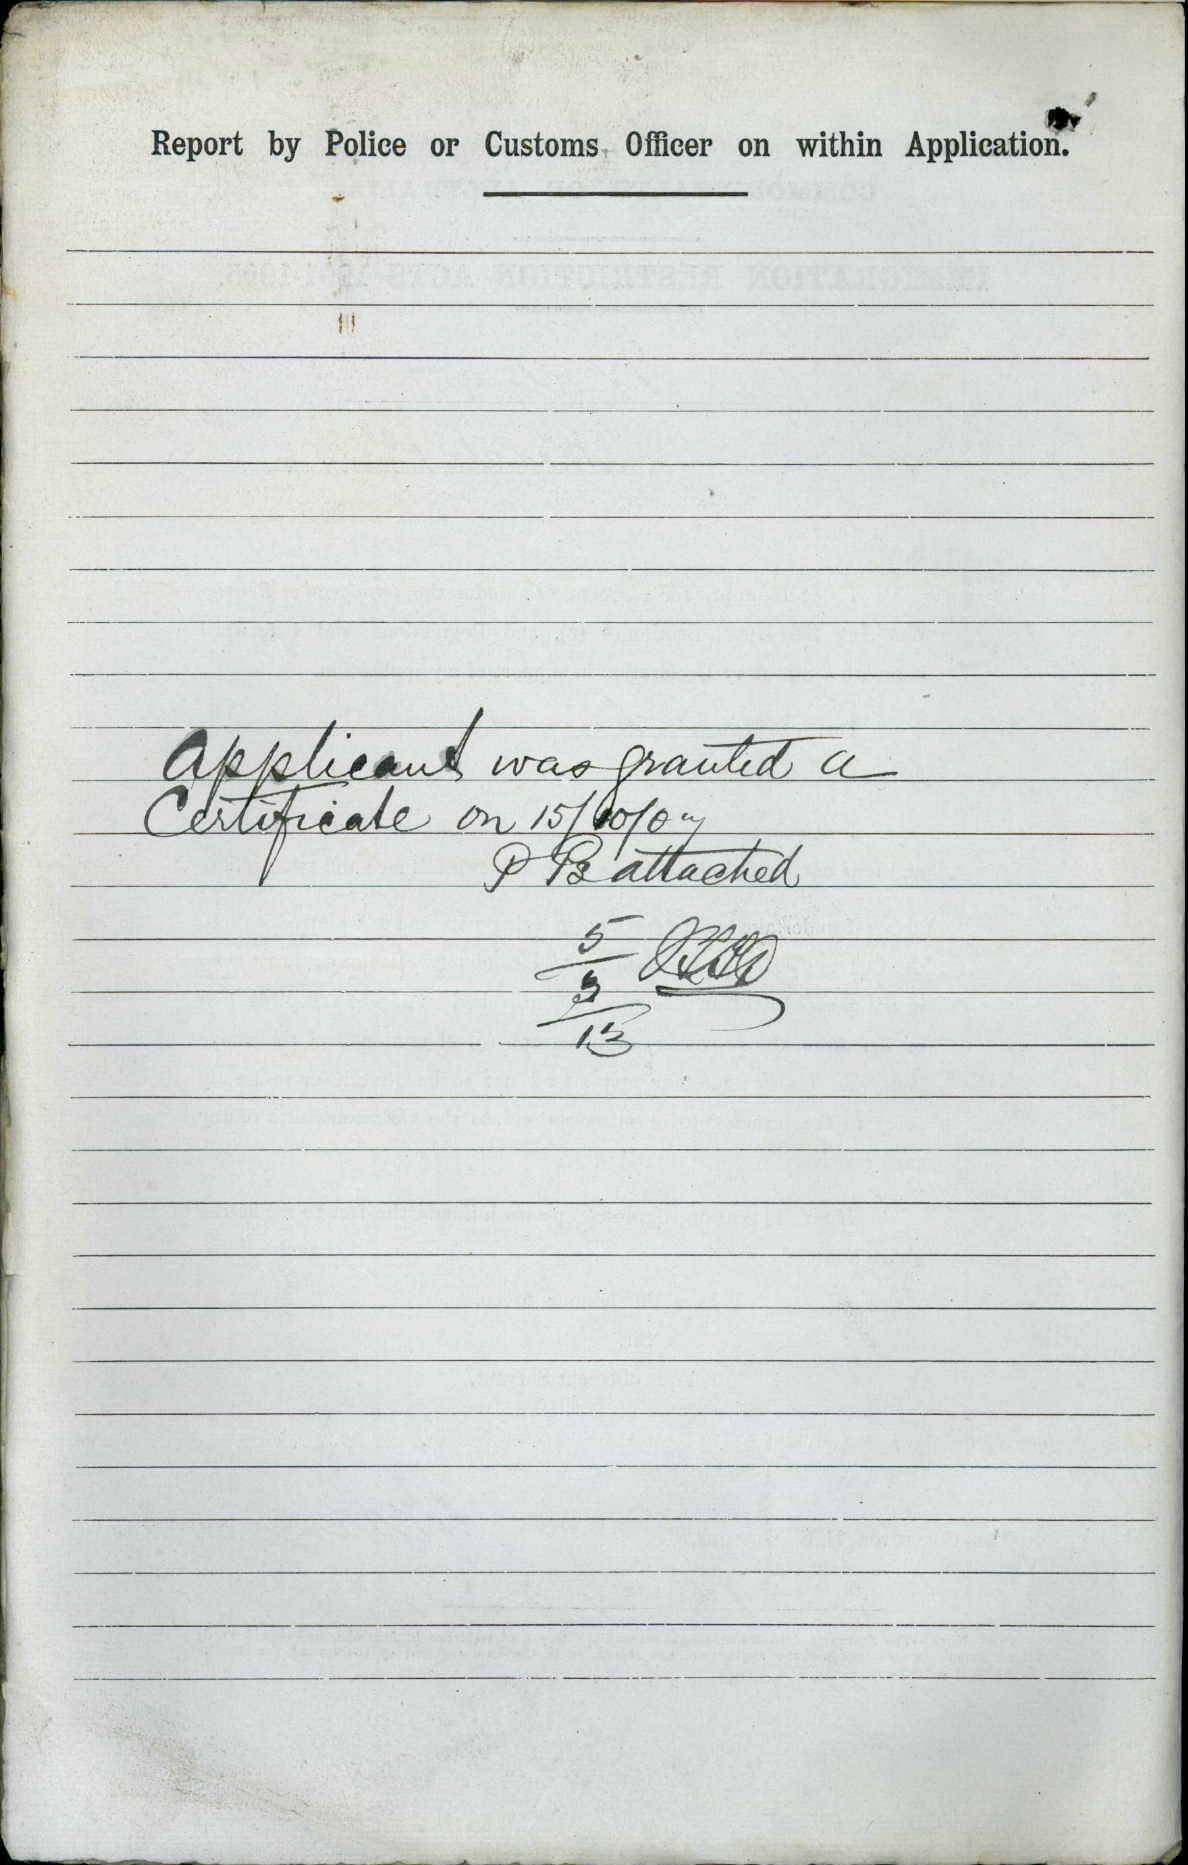 Report by Police or Customs Officer on within Application.
Applicant was granted a
Certificate on 15/10/07
P B attached
5
3
13